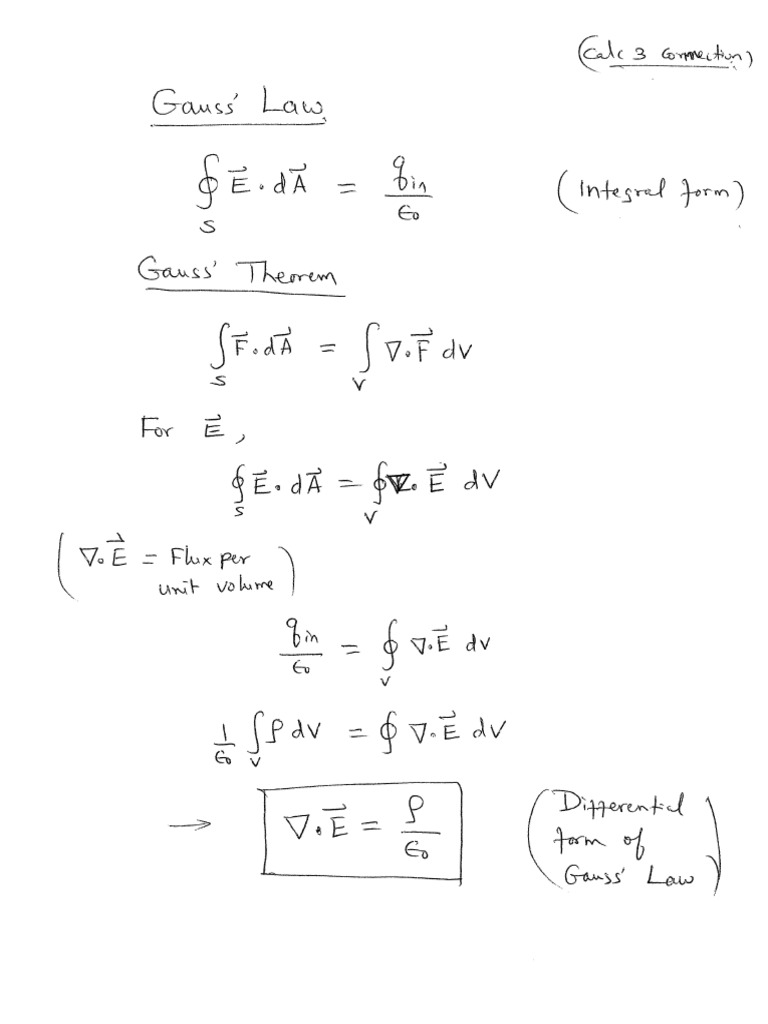 (Calc 3 connection)
Gauss' Law
∮_S E⃗ · dA⃗ = q_in / ε₀ (Integral form)
Gauss' Theorem
∫_S F⃗ · dA⃗ = ∫_V ∇ · F⃗ dV
For E⃗ ,
∮_S E⃗ · dA⃗ = ∮_V ∇ · E⃗ dV
( ∇ · E⃗ = Flux per
unit volume )
q_in / ε₀ = ∮_V ∇ · E⃗ dV
1/ε₀ ∫_V ρ dV = ∮ ∇ · E⃗ dV
→ ∇ · E⃗ = ρ / ε₀ ( Differential
form of
Gauss' Law )